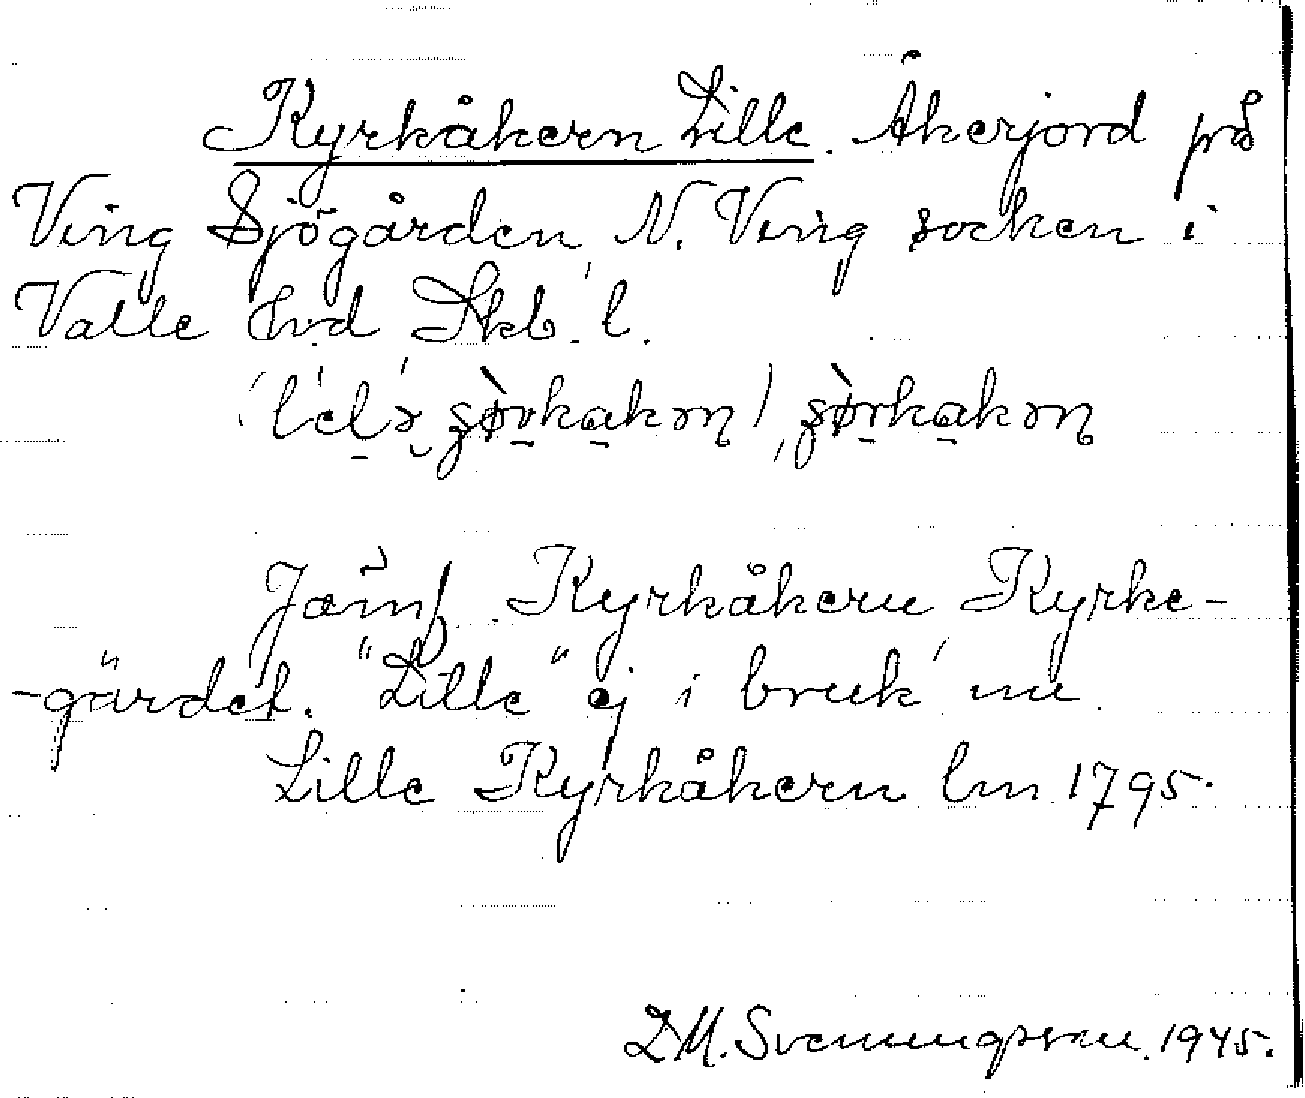 Kyrkåkern Lille. Åkerjord på
Ving Sjögården, N. Ving socken i
Valle hrd Skb. l.
Jämf. Kyrkåkern Kyrke-
-gärdet. "Lille" ej i bruk nu.
Lille Kyrkåkern lm 1795.
D.M. Svenningsson. 1945.